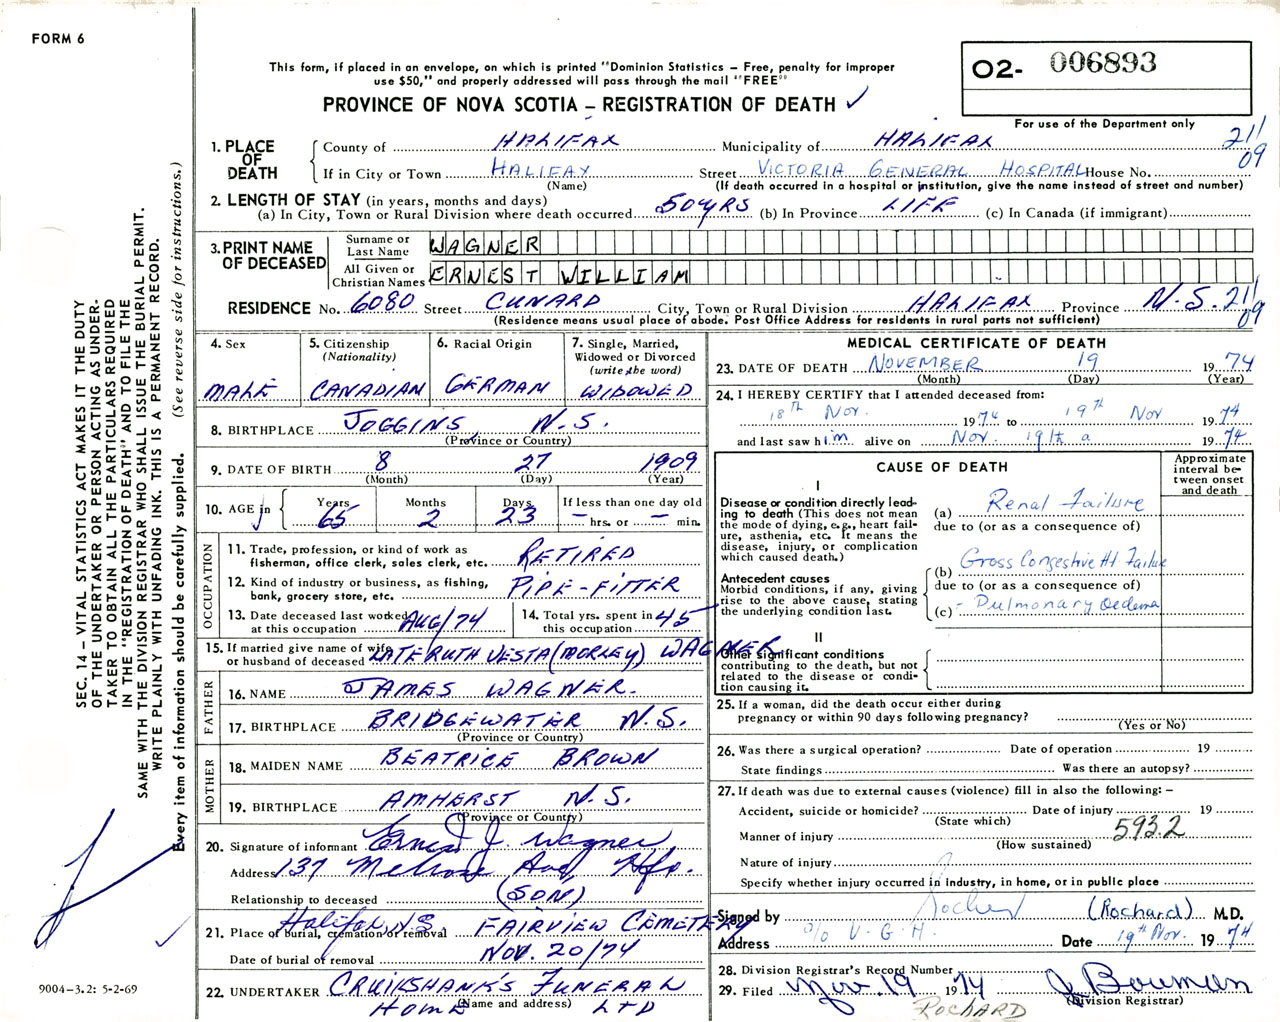 FORM 6
This form, if placed in an envelope, on which is printed "Dominion Statistics – Free, penalty for improper
use $50," and properly addressed will pass through the mail "FREE"
PROVINCE OF NOVA SCOTIA – REGISTRATION OF DEATH ✓
02- 006893
For use of the Department only
1. PLACE OF DEATH
County of HALIFAX Municipality of HALIFAX 211
If in City or Town HALIFAX Street VICTORIA GENERAL HOSPITAL House No. 09
(Name) (If death occurred in a hospital or institution, give the name instead of street and number)
2. LENGTH OF STAY (in years, months and days)
(a) In City, Town or Rural Division where death occurred 50 YRS (b) In Province LIFE (c) In Canada (if immigrant)
3. PRINT NAME OF DECEASED
Surname or Last Name WAGNER
All Given or Christian Names ERNEST WILLIAM
RESIDENCE No. 6080 Street CUNARD City, Town or Rural Division HALIFAX Province N.S. 211
(Residence means usual place of abode. Post Office Address for residents in rural parts not sufficient) 09
4. Sex MALE
5. Citizenship (Nationality) CANADIAN
6. Racial Origin GERMAN
7. Single, Married, Widowed or Divorced (write the word) WIDOWED
8. BIRTHPLACE JOGGINS, N.S.
(Province or Country)
9. DATE OF BIRTH 8 27 1909
(Month) (Day) (Year)
10. AGE in Years 65 Months 2 Days 23 If less than one day old – hrs. or – min.
OCCUPATION
11. Trade, profession, or kind of work as fisherman, office clerk, sales clerk, etc. RETIRED
12. Kind of industry or business, as fishing, bank, grocery store, etc. PIPE-FITTER
13. Date deceased last worked at this occupation AUG/74
14. Total yrs. spent in this occupation 45
15. If married give name of wife or husband of deceased LATE RUTH VESTA (MORLEY) WAGNER
FATHER
16. NAME JAMES WAGNER.
17. BIRTHPLACE BRIDGEWATER N.S.
(Province or Country)
MOTHER
18. MAIDEN NAME BEATRICE BROWN
19. BIRTHPLACE AMHERST N.S.
(Province or Country)
20. Signature of informant Ernest J. Wagner
Address 137 Melrose Ave Hfx.
Relationship to deceased (SON)
21. Place of burial, cremation or removal Halifax, N.S. FAIRVIEW CEMETERY
Date of burial or removal NOV. 20/74
22. UNDERTAKER CRUIKSHANK'S FUNERAL
(Name and address) HOME LTD
MEDICAL CERTIFICATE OF DEATH
23. DATE OF DEATH NOVEMBER 19 1974
(Month) (Day) (Year)
24. I HEREBY CERTIFY that I attended deceased from:
18th Nov. 1974 to 19th Nov 1974
and last saw him alive on Nov. 19th a 1974
CAUSE OF DEATH
Approximate interval between onset and death
I
Disease or condition directly leading to death (This does not mean the mode of dying, e.g., heart failure, asthenia, etc. It means the disease, injury, or complication which caused death.)
(a) Renal Failure
due to (or as a consequence of)
Antecedent causes
Morbid conditions, if any, giving rise to the above cause, stating the underlying condition last.
(b) Gross Congestive Ht Failure
due to (or as a consequence of)
(c) - Pulmonary Oedema
II
Other significant conditions
contributing to the death, but not related to the disease or condition causing it.
25. If a woman, did the death occur either during
pregnancy or within 90 days following pregnancy?
(Yes or No)
26. Was there a surgical operation? Date of operation 19
State findings Was there an autopsy?
27. If death was due to external causes (violence) fill in also the following: –
Accident, suicide or homicide? Date of injury 19
(State which)
Manner of injury 593.2
(How sustained)
Nature of injury
Specify whether injury occurred in industry, in home, or in public place
Signed by Rochard (Rochard) M.D.
Address c/o V.G.H. Date 19th Nov. 1974
28. Division Registrar's Record Number
29. Filed Nov. 19 1974 J Bowman
(Division Registrar)
ROCHARD
SEC. 14 – VITAL STATISTICS ACT MAKES IT THE DUTY
OF THE UNDERTAKER OR PERSON ACTING AS UNDER-
TAKER TO OBTAIN ALL THE PARTICULARS REQUIRED
IN THE "REGISTRATION OF DEATH" AND TO FILE THE
SAME WITH THE DIVISION REGISTRAR WHO SHALL ISSUE THE BURIAL PERMIT.
WRITE PLAINLY WITH UNFADING INK. THIS IS A PERMANENT RECORD.
Every item of information should be carefully supplied. (See reverse side for instructions.)
9004-3.2: 5-2-69